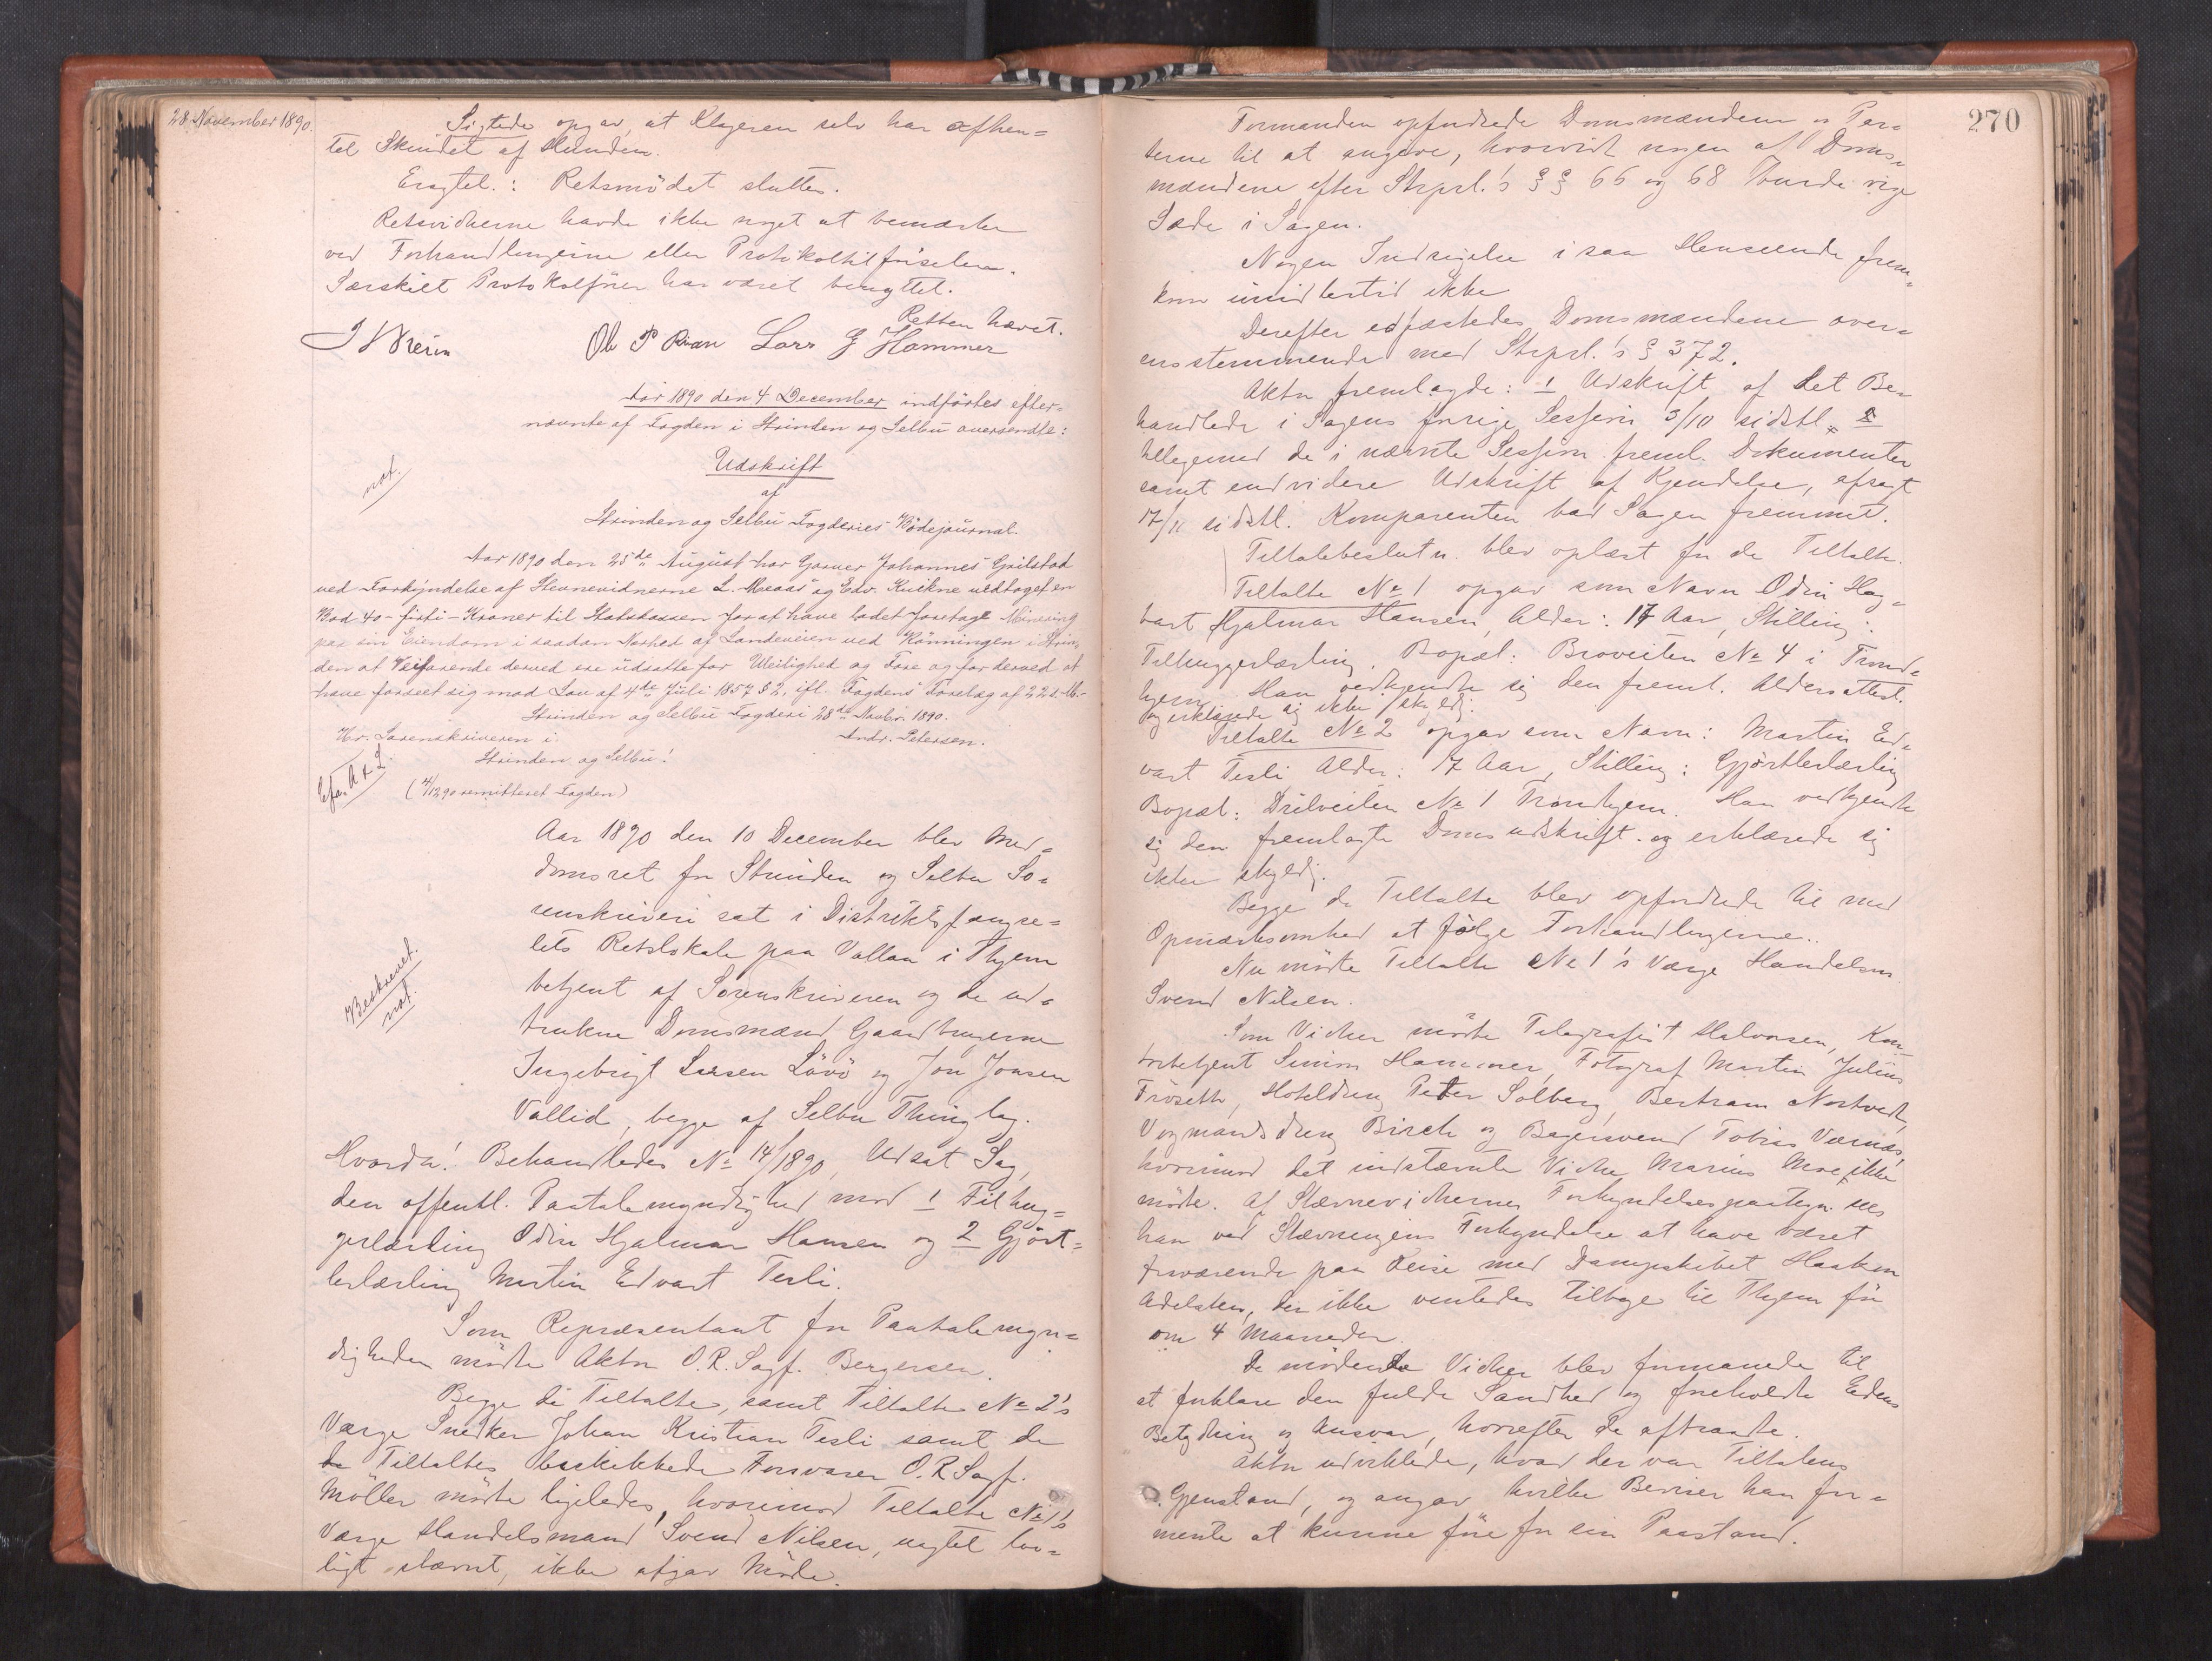 28 November 1890.
Sigtede opgav, at Klageren selv har afhen=
tet Skindet af Hunden.
Eragtet.: Retsmödet sluttes.
Retsvidnerne havde ikke noget at bemærke
ved Forhandlingerne eller Protokoltilförselen.
Særskilt Protokolförer har været benyttet.
Retten hævet.
Ole P Lars G Hammer
Aar 1890 den 4 December indförtes efter=
nævnte af Fogden i Strinden og Selbu oversendte:
not.
Udskrift
af
Strinden og Selbu Fogderies Bödejournal.
Aar 1890 den 25de August har Garver Johannes Grilstad
ved Forkyndelse af Stevnevidnerne L. Meaas og Edv. Kuikne vedtaget en
Bod 40 - firti - Kroner til Statskassen for at have ladet foretage Minering
paa sin Eiendom i saadan Nærhed af Landeveien ved Rönningen i Strin=
den at Veifarende derved ere udsatte for Uleilighed og Fare og for derved at
have forseet sig mod Lov af 4de Juli 1857 § 2, ifl. Fogdens Forelæg af 22 s. M.
Strinden og Selbu Fogderi 28de Novbr. 1890.
Hr. Sorenskriveren i Andr. Petersen.
Strinden og Selbu!
(4/12 90 remitteret Fogden)
Aar 1890 den 10 December blev Med=
domsret for Strinden og Selbu So=
renskriveri sat i Distriktsfængse=
lets Retslokale paa Vollan i Thjem
betjent af Sorenskriveren og de ud=
Beskrevet.
not.
trukne Domsmænd Gaardbrugerne
Ingebrigt Larsen Lövö og Jon Jonsen
Vallid, begge af Selbu Thinglag.
Hvorda! Behandledes No 14/1890, Udsat Sag,
den offentl. Paatalemyndighed mod 1 Tilhug=
gerlærling Odin Hjalmar Hansen og 2 Gjört=
lerlærling Martin Edvart Tesli.
Som Repræsentant for Paatalemyn=
digheden mödte Aktor O.R. Sagf. Bergersen.
Begge de Tiltalte, samt Tiltalte No 2's
Værge Snedker Johan Kristian Tesli samt de
Tiltaltes beskikkede Forsvarer O.R. Sagf.
Möller mödte ligeledes, hvorimod Tiltalte No 1's
Værge Handelsmand Svend Nilsen, uagtet lov=
ligt stævnt, ikke afgav Möde.
270
Formanden opfordrede Domsmændene og Par=
terne til at angive, hvorvidt nogen af Doms=
mændene efter Strprl.'s §§ 66 og 68 burde vige
Sæde i Sagen.
Nogen Indsigelse i saa Henseende frem=
kom imidlertid ikke
Derefter edfæstedes Domsmændene over=
ensstemmende med Strprl.'s § 372.
Aktor fremlagde: 1 Udskrift af det Be=
handlede i Sagens forrige Session 3/10 sidstl.
tilligemed de i nævnte Session freml. Dokumenter
samt endvidere Udskrift af Kjendelse, afsagt
17/11 sidstl. Komparenten bad Sagen fremmet.
Tiltalebeslutn. blev oplæst for de Tiltalte.
Tiltalte No 1 opgav som Navn Odin Hag=
bart Hjalmar Hansen, Alder: 17 Aar, Stilling:
Tilhuggerlærling. Bopæl: Broveiten No 4 i Trond=
hjem. Han vedkjendte sig den freml. Aldersattest.
og erklærede sig ikke skyldig.
Tiltalte No 2 opgav som Navn: Martin Ed=
vart Tesli Alder: 17 Aar, Stilling: Gjörtlerlærling
Bopæl: Drilveiten No 1 Trondhjem. Han vedkjendte
sig den fremlagte Domsudskrift og erklærede sig
ikke skyldig.
Begge de Tiltalte blev opfordrede til med
Opmærksomhed at fölge Forhandlingerne.
Nu mödte Tiltalte No 1's Værge Handelsm.
Svend Nilsen.
Som Vidner mödte Telegrafist Halvorsen, Kon=
torbetjent Simon Hammer, Fotograf Martin Julius
Fröseth, Hoteldreng Peter Solberg, Bertram Nertvedt,
Vognmandsdreng Birch og Bagersvend Tobias Værnæs,
hvorimod det indstævnte Vidne Marius Moe ikke
mödte. Af Stævnevidnernes Forkyndelsespaategn. sees
han ved Stævningens Forkyndelse at have været
fraværende paa Reise med Dampskibet Haakon
Adelsten, der ikke ventedes tilbage til Thjem för
om 4 Maaneder.
De mödende Vidner blev formanede til
at forklare den fulde Sandhed og foreholdte Edens
Betydning og Ansvar, hvorefter de aftraadte.
Aktor udviklede, hvad der var Tiltalens
Gjenstand, og angav hvilke Beviser han for=
mente at kunne före for sin Paastand.